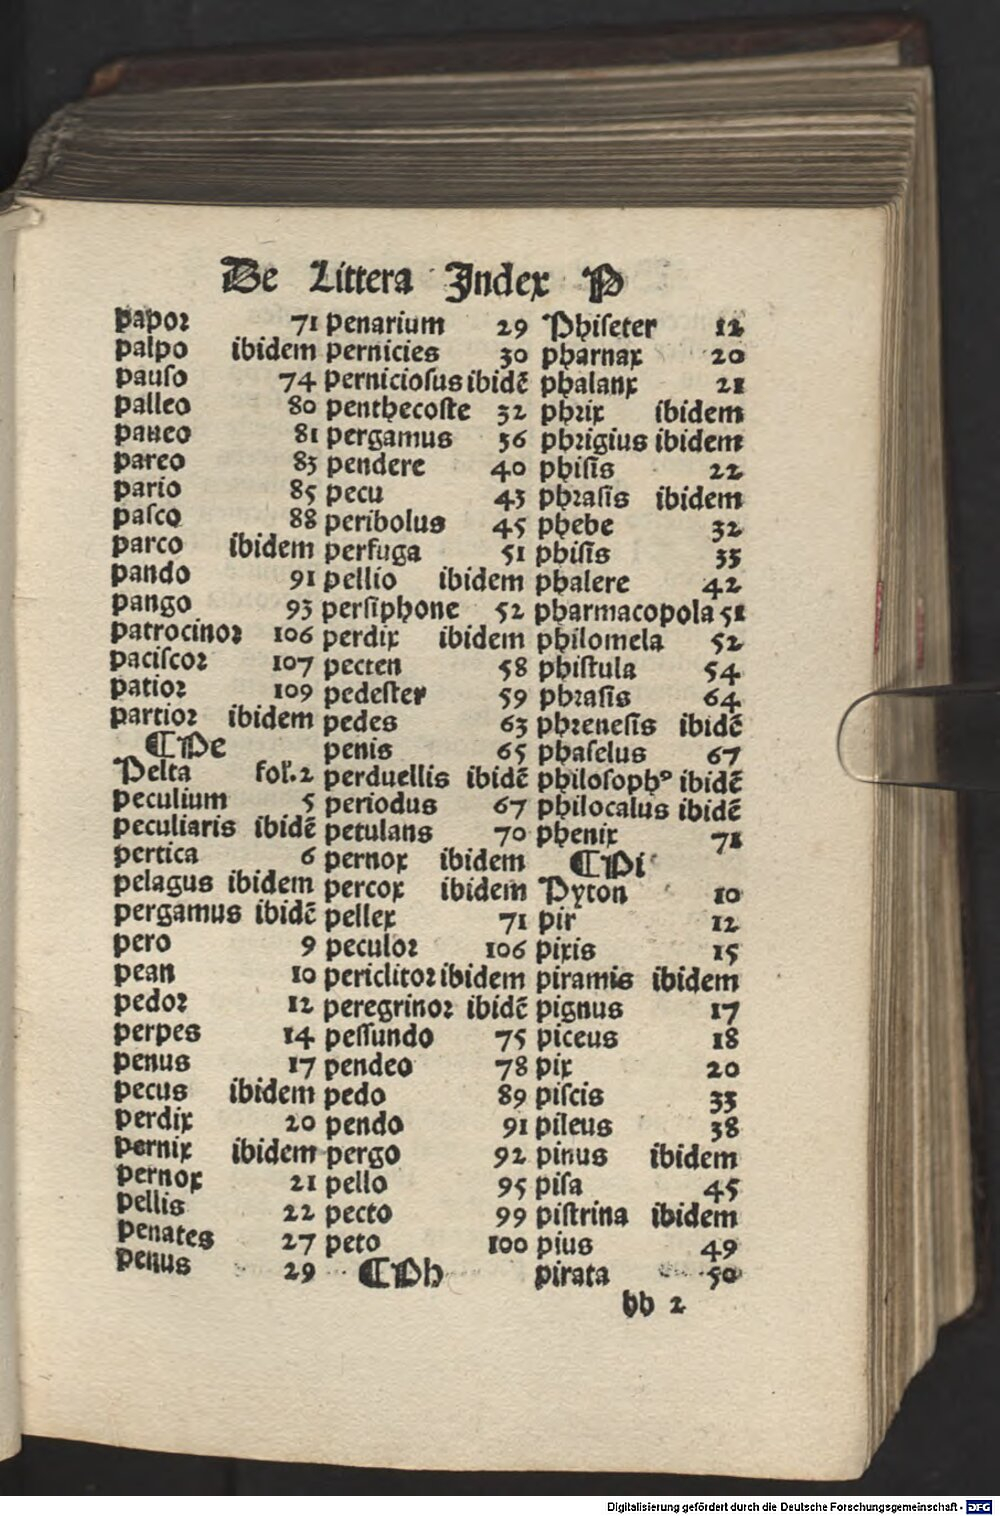 De Littera Index P
papor 71
palpo ibidem
pauso 74
palleo 80
paueo 81
pareo 83
pario 85
pasco 88
parco ibidem
pando 91
pango 93
patrocinor 106
paciscor 107
patior 109
partior ibidem
¶Pe
Pelta fol. 2
peculium 5
peculiaris ibidē
pertica 6
pelagus ibidem
pergamus ibidē
pero 9
pean 10
pedor 12
perpes 14
penus 17
pecus ibidem
perdix 20
pernix ibidem
pernox 21
pellis 22
penates 27
penus 29
penarium 29
pernicies 30
perniciosus ibidē
penthecoste 32
pergamus 36
pendere 40
pecu 43
peribolus 45
perfuga 51
pellio ibidem
persiphone 52
perdix ibidem
pecten 58
pedester 59
pedes 63
penis 65
perduellis ibidē
periodus 67
petulans 70
pernox ibidem
percox ibidem
pellex 71
peculor 106
periclitor ibidem
peregrinor ibidē
pessundo 75
pendeo 78
pedo 89
pendo 91
pergo 92
pello 95
pecto 99
peto 100
¶Ph
Phiseter 12
pharnax 20
phalanx 21
phrix ibidem
phrigius ibidem
phisis 22
phrasis ibidem
phebe 32
phisis 33
phalere 42
pharmacopola 51
philomela 52
phistula 54
phrasis 64
phrenesis ibidē
phaselus 67
philosophꝰ ibidē
philocalus ibidē
phenix 71
¶Pi
Pyton 10
pir 12
pixis 15
piramis ibidem
pignus 17
piceus 18
pix 20
piscis 33
pileus 38
pinus ibidem
pisa 45
pistrina ibidem
pius 49
pirata 50
bb 2
Digitalisierung gefördert durch die Deutsche Forschungsgemeinschaft - DFG